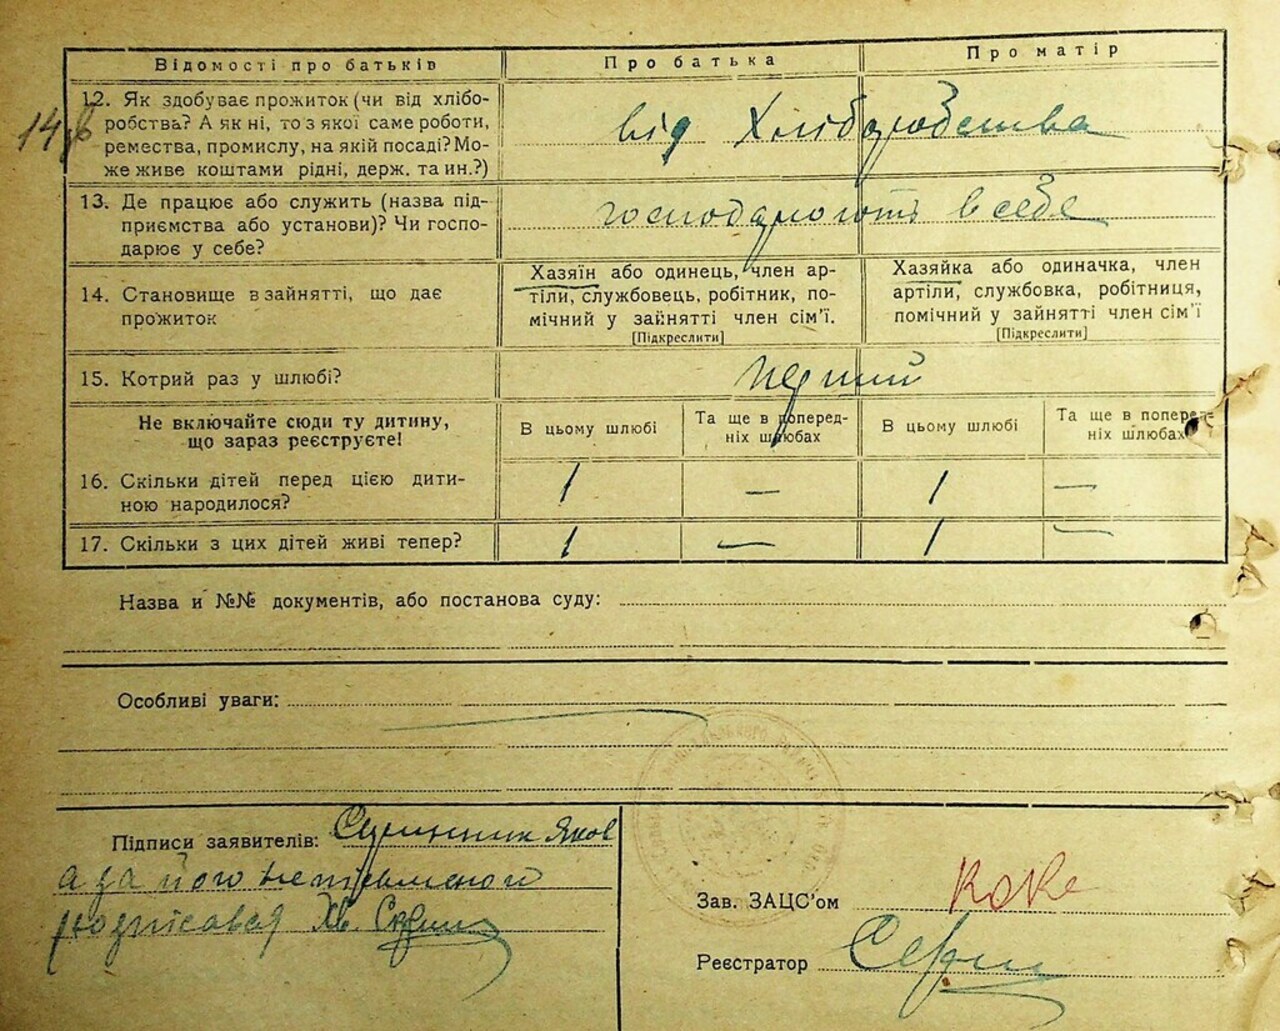 Відомості про батьків
Про батька
Про матір
14 в
12. Як здобуває прожиток (чи від хлібо-
робства? А як ні, то з якої саме роботи,
ремества, промислу, на якій посаді? Мо-
же живе коштами рідні, держ. та ин.?)
від Хліборобства
13. Де працює або служить (назва під-
приємства або установи)? Чи госпо-
дарює у себе?
господарюють в себе
14. Становище в зайнятті, що дає
прожиток
Хазяїн або одинець, член ар-
тіли, службовець, робітник, по-
мічний у зайнятті член сім'ї.
[Підкреслити]
Хазяйка або одиначка, член
артіли, службовка, робітниця,
помічний у зайнятті член сім'ї
[Підкреслити]
15. Котрий раз у шлюбі?
перший
Не включайте сюди ту дитину,
що зараз реєструєте!
В цьому шлюбі
Та ще в поперед-
ніх шлюбах
В цьому шлюбі
Та ще в поперед-
ніх шлюбах
16. Скільки дітей перед цією дити-
ною народилося?
1 — 1 —
17. Скільки з цих дітей живі тепер?
1 — 1 —
Назва и №№ документів, або постанова суду:
Особливі уваги:
Підписи заявителів: Яков
а за його неписьменого
розписався Хв.
Зав. ЗАЦС'ом
Реєстратор